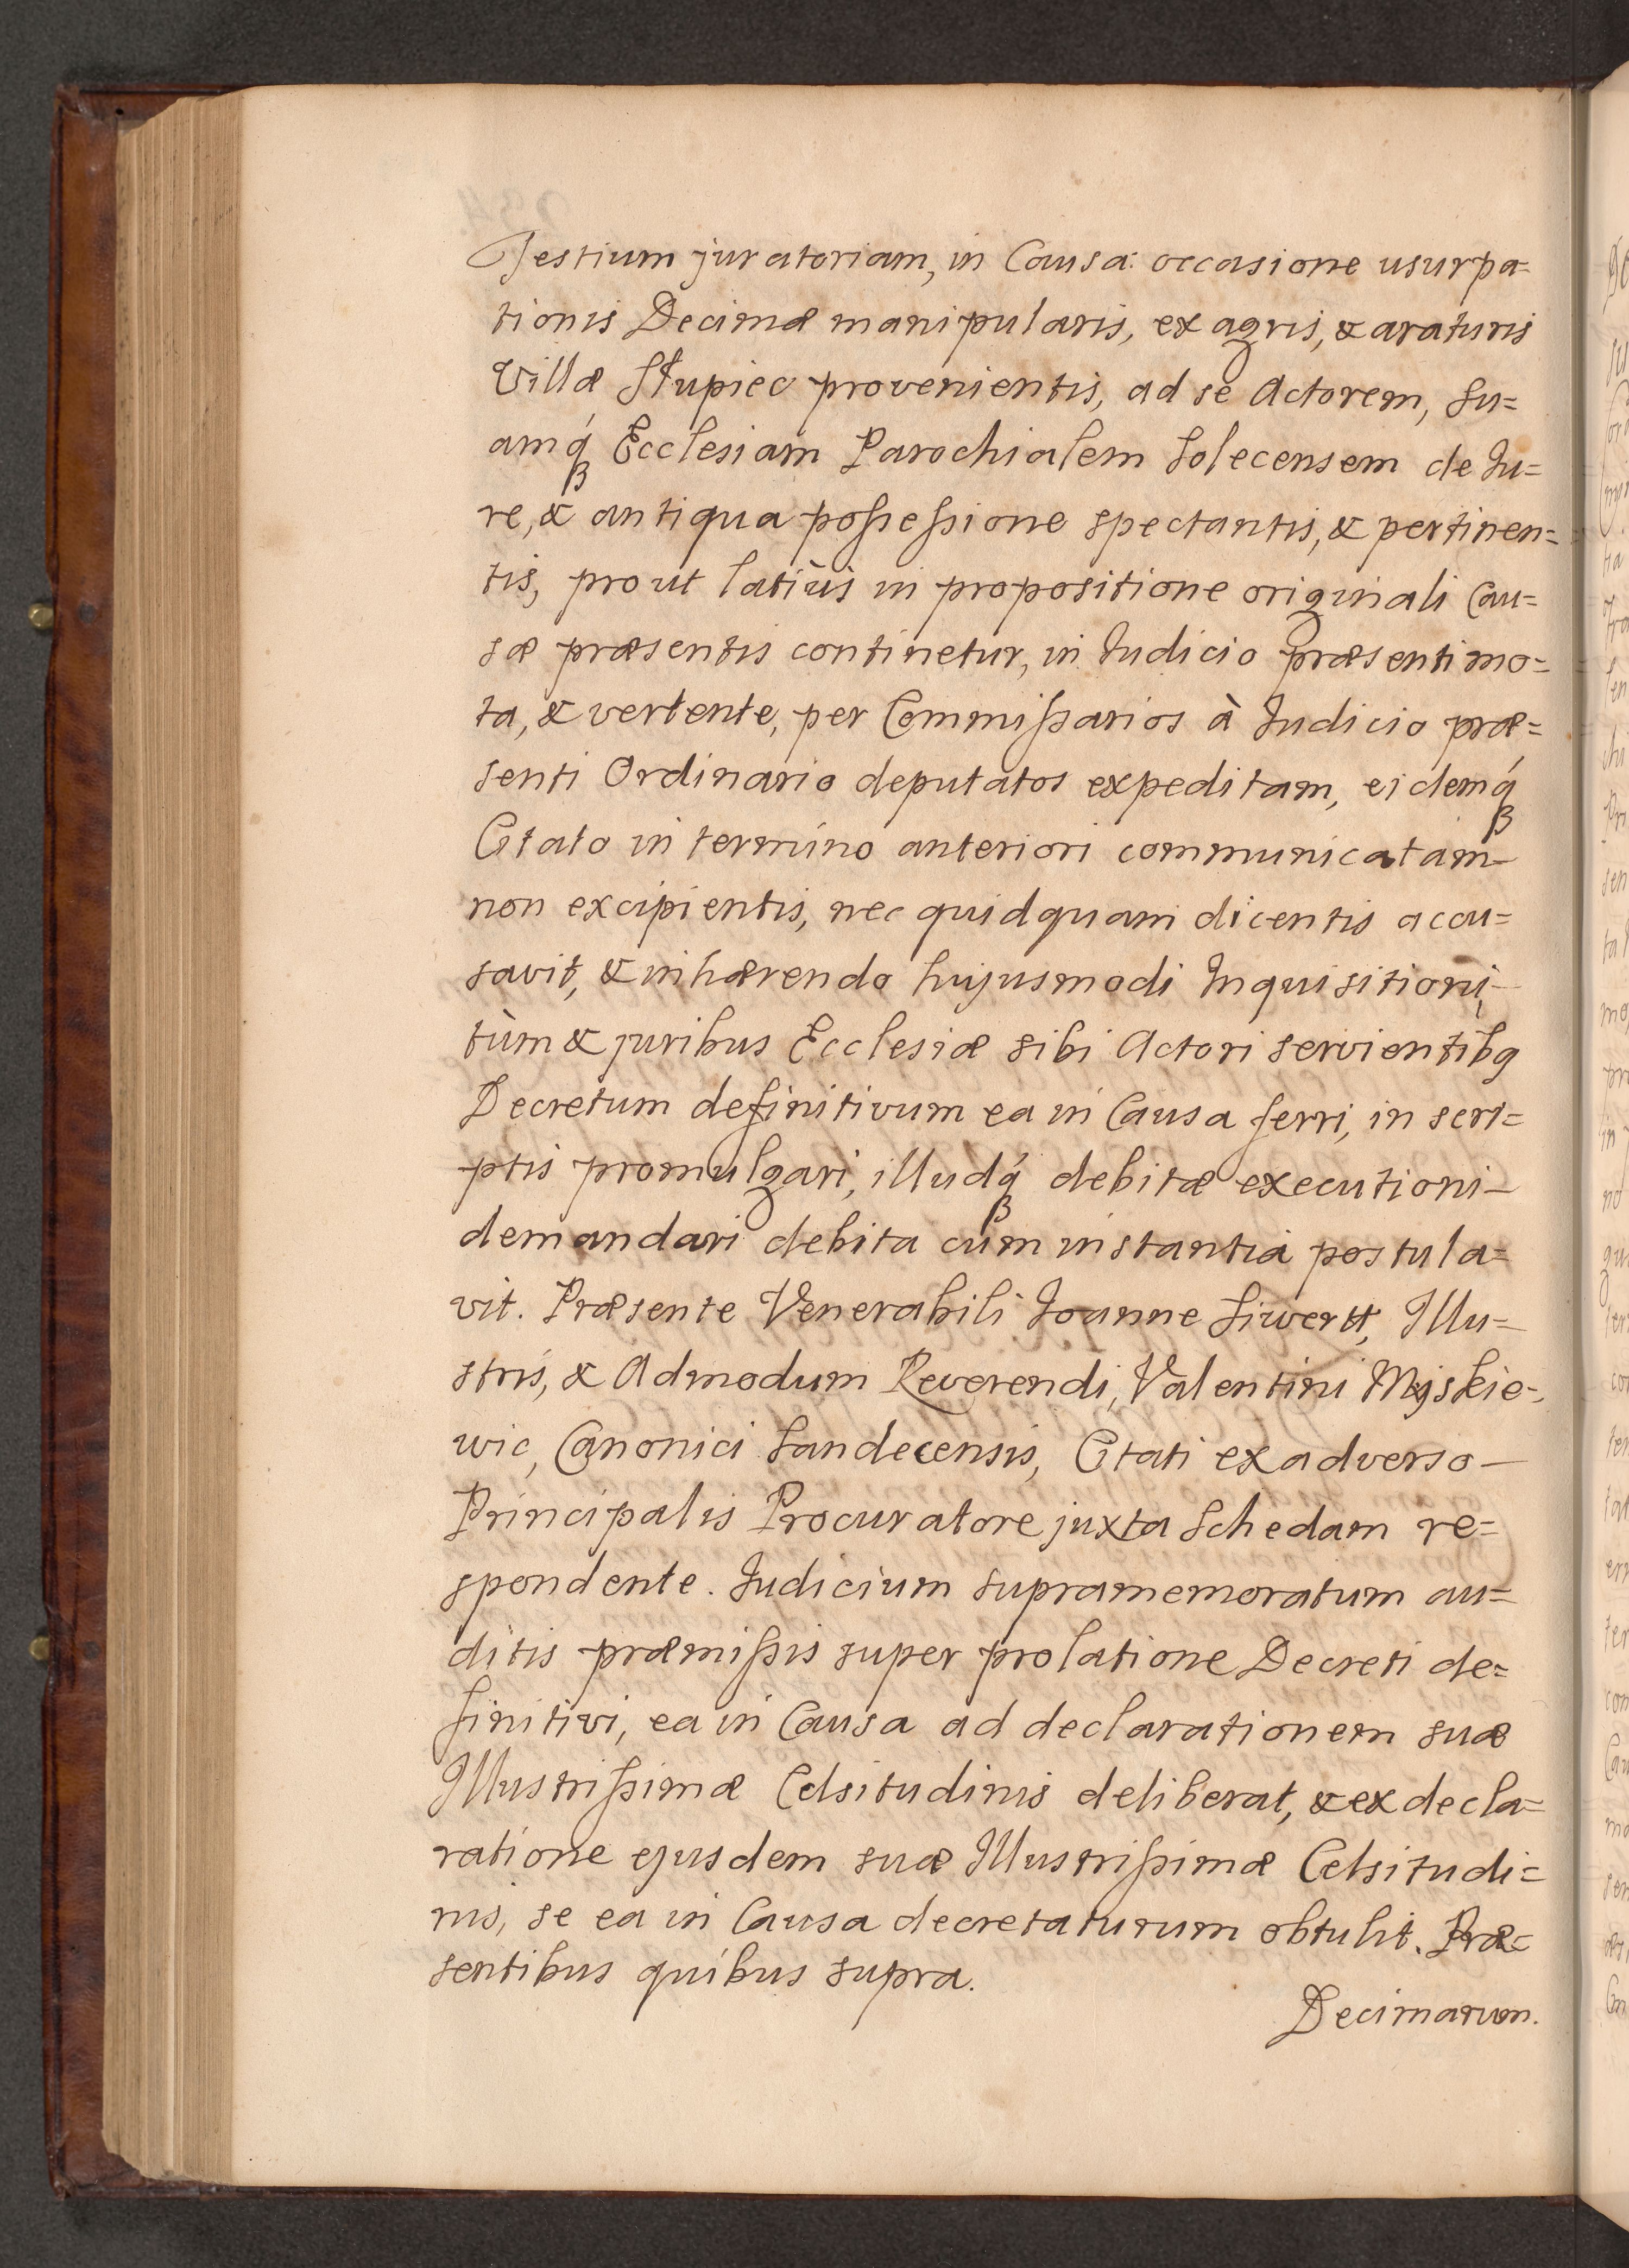 Testium juratoriam, in Causa: occasione usurpa=
tionis Decimæ manipularis, ex agris, & araturis
Villæ Słupiec provenientis, ad se Actorem, Su=
amq́ꝫ Ecclesiam Parochialem Solecensem de Ju=
re, & antiqua possessione spectantis, & pertinen=
tis, prout latiùs in propositione originali Cau=
sæ præsentis continetur, in Judicio præsenti mo=
ta, & vertente, per Commissarios à Judicio præ=
senti Ordinario deputatos expeditam, eidemq́ꝫ
Citato in termino anteriori communicatam
non excipientis, nec quidquam dicentis accu=
savit, & inhærendo hujusmodi Inquisitioni,
tùm & juribus Ecclesiæ sibi Actori servientibq
Decretum definitivum ea in Causa ferri, in scri=
ptis promulgari, illudq́ꝫ debitæ executioni
demandari debita cum instantia postula=
vit. Præsente Venerabili Joanne Siwertt, Illu=
stris, & Admodum Reverendi, Valentini Myskie-
wic, Canonici Sandecensis, Citati ex adverso
Principalis Procuratore juxta Schedam re=
spondente. Judicium supramemoratum au=
ditis præmissis super prolatione Decreti de=
finitivi, ea in Causa ad declarationem suæ
Illustrissimæ Celsitudinis deliberat, & ex decla=
ratione ejusdem suæ Illustrissimæ Celsitudi=
nis, se ea in Causa decretaturum obtulit. Præ=
sentibus quibus supra.
Decimarum.